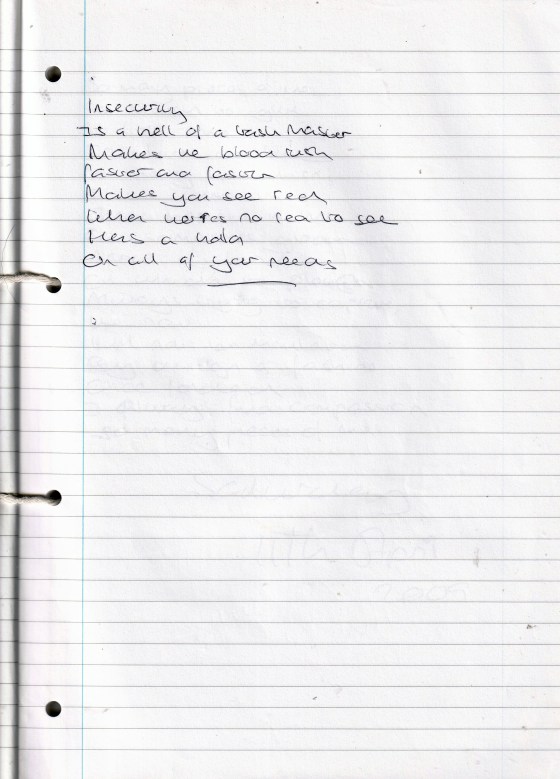 Insecurity
Is a hell of a task Master
Makes the blood rush
faster and faster
Makes you see red
When theres no red to see
Has a hold
On all of your needs